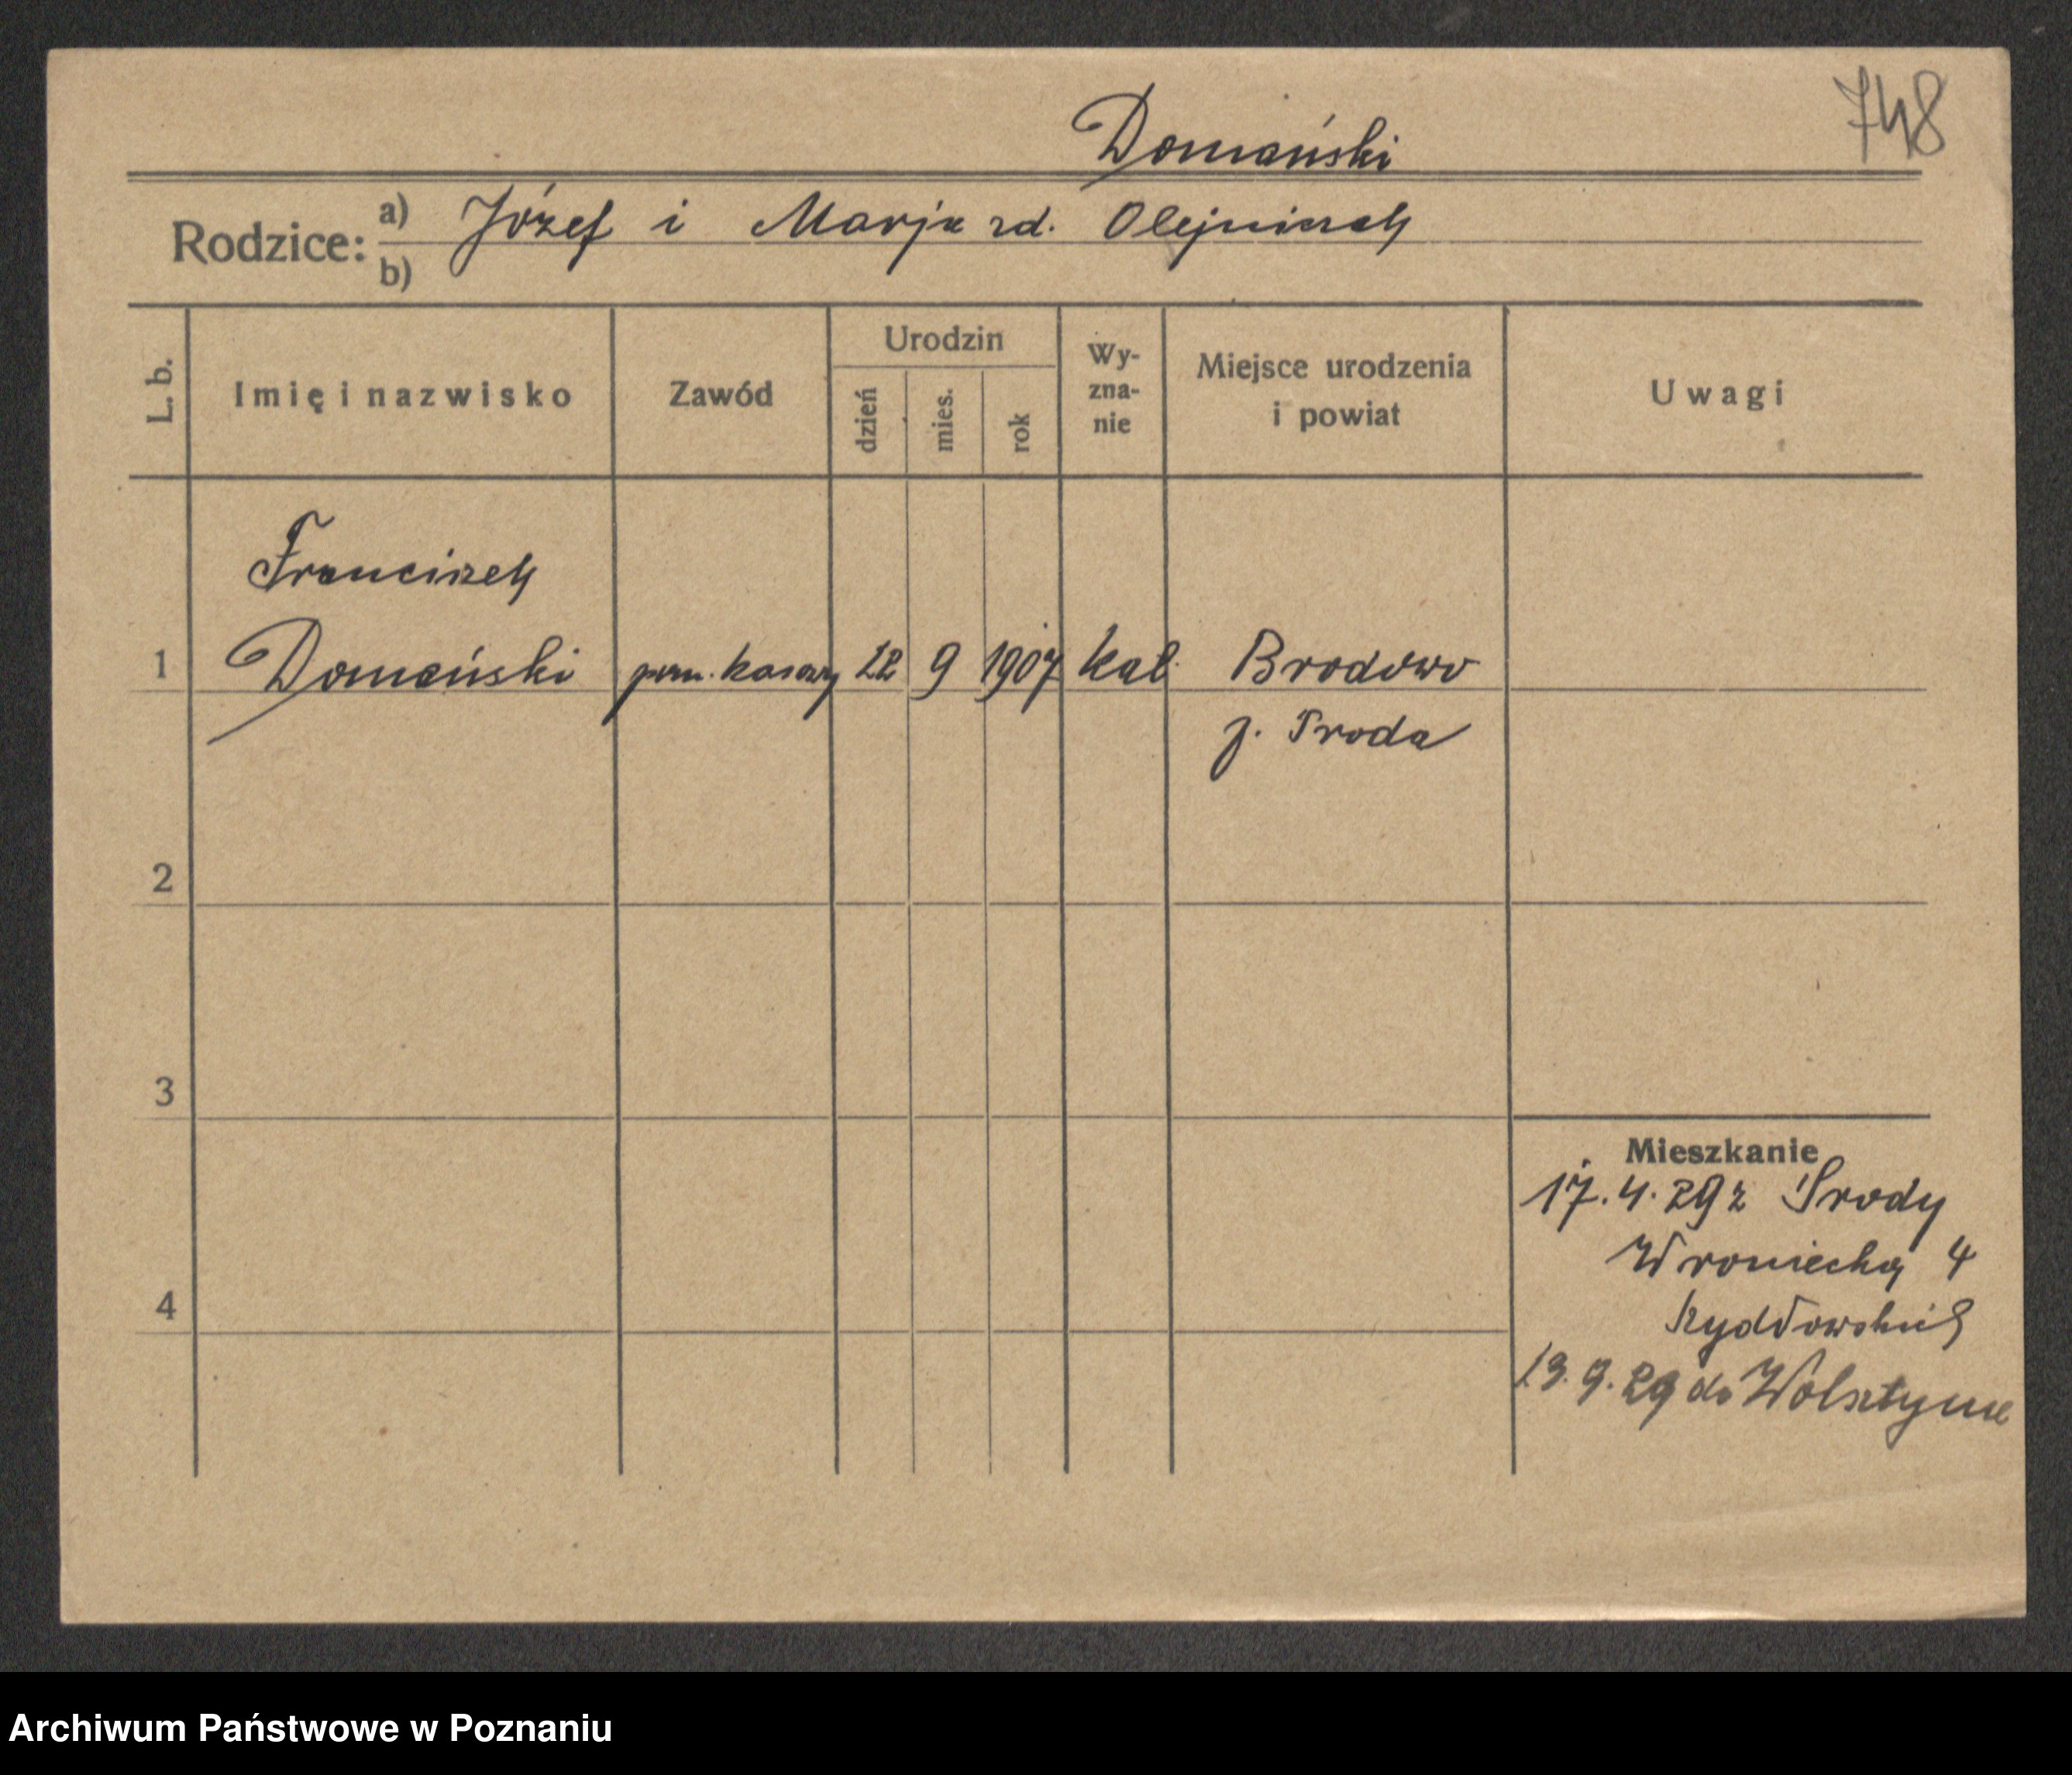 748
Domański
Rodzice: a) Józef i Marja zd. Olejniczak
b)
L. b.
Imię i nazwisko
Zawód
Urodzin
dzień
mies.
rok
Wy-
zna-
nie
Miejsce urodzenia
i powiat
Uwagi
Franciszek
1 Domański pom. kasowy 22 9 1907 kat. Brodowo
p. Środa
2
3
4
Mieszkanie
17.4.29 z Środy
Wroniecka 4
13.9.29 do Wolsztyna
Archiwum Państwowe w Poznaniu